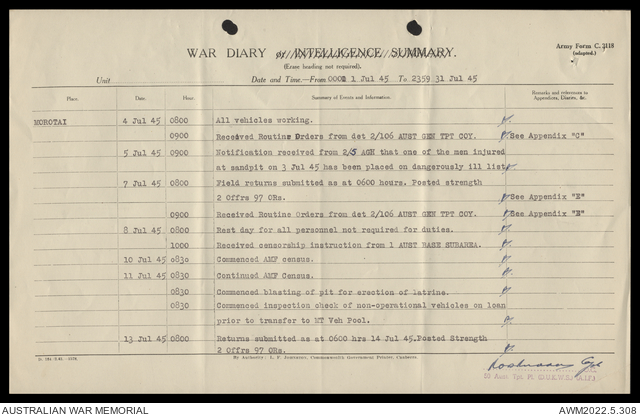 WAR DIARY or INTELLIGENCE SUMMARY.
Army Form C. 2118
(adapted.)
(Erase heading not required).
Unit
Date and Time.—From 0001 1 Jul 45 To 2359 31 Jul 45
Place. Date. Hour. Summary of Events and Information. Remarks and references to Appendices, Diaries, &c.
MOROTAI 4 Jul 45 0800 All vehicles working.
0900 Received Routine Orders from det 2/106 AUST GEN TPT COY. See Appendix "C"
5 Jul 45 0900 Notification received from 2/5 AGH that one of the men injured
at sandpit on 3 Jul 45 has been placed on dangerously ill list
7 Jul 45 0800 Field returns submitted as at 0600 hours. Posted strength
2 Offrs 97 ORs. See Appendix "E"
0900 Received Routine Orders from det 2/106 AUST GEN TPT COY. See Appendix "E"
8 Jul 45 0800 Rest day for all personnel not required for duties.
1000 Received censorship instruction from 1 AUST BASE SUBAREA.
10 Jul 45 0830 Commenced AMF census.
11 Jul 45 0830 Continued AMF Census.
0830 Commenced blasting of pit for erection of latrine.
0830 Commenced inspection check of non-operational vehicles on loan
prior to transfer to MT Veh Pool.
13 Jul 45 0800 Returns submitted as at 0600 hrs 14 Jul 45.Posted Strength
2 Offrs 97 ORs.
By Authority: L. F. Johnston, Commonwealth Government Printer, Canberra.
AUSTRALIAN WAR MEMORIAL
AWM2022.5.308